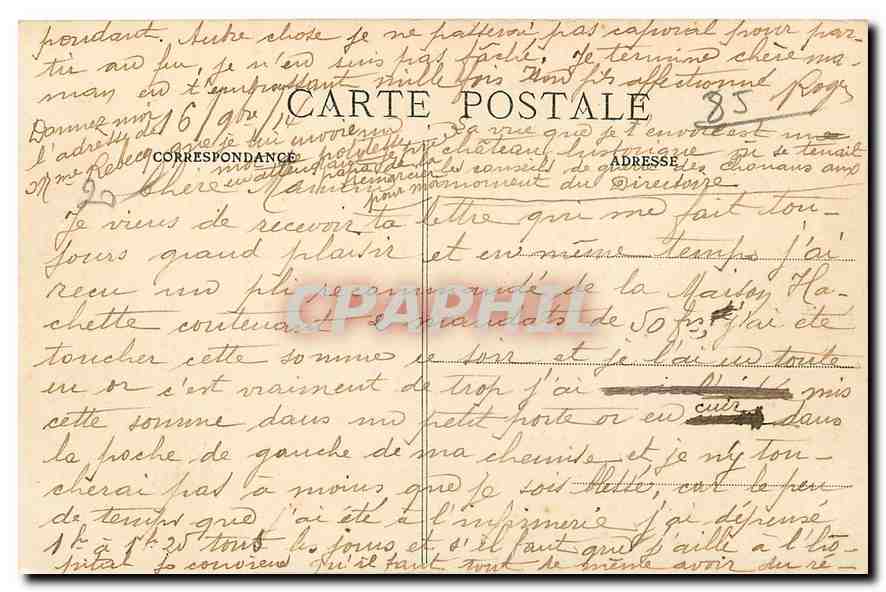 pondant. Autre chose je ne passerai pas caporal pour par-
tir au feu, je n'en suis pas fâché. Je termine chère ma-
man en t'embrassant mille fois Ton fils affectionné Roger
CARTE POSTALE
85
16 9bre 14
Donnez moi
l'adresse de
Mme Rebecq que je lui envoie
en attendant
papa de la
remercier
pour moi
La vue que je t'envoie est un
château historique où se tenait
les conseils de guerre des chouans aux
moment du Directoire
CORRESPONDANCE
ADRESSE
20
Chère Maman
Je viens de recevoir ta lettre qui me fait tou-
jours grand plaisir et en même temps j'ai
reçu un pli recommandé de la Maison Ha-
chette contenant mandats de 50 frs, j'ai été
toucher cette somme ce soir et je l'ai eu toute
en or c'est vraiment de trop j'ai mis
cette somme dans un petit porte or en cuir dans
la poche de gauche de ma chemise et je n'y tou-
cherai pas à moins que je sois blessé, car le peu
de temps que j'ai été à l'infirmerie j'ai dépensé
1fr à 1fr 25 tous les jours et s'il faut que j'aille à l'hô-
pital je conviens qu'il faut tout de même avoir du ré-
CPAPHIL